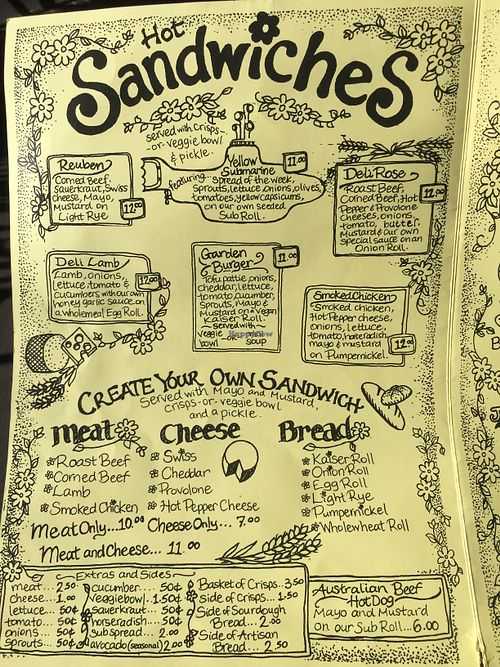 Hot
Sandwiches
served with crisps-
or-veggie bowl
& pickle.
Reuben
Corned Beef,
sauerkraut, Swiss
cheese, Mayo,
Mustard on
Light Rye
12.00
featuring...
Yellow
Submarine
11.00
spread of the week,
sprouts, lettuce, onions, olives,
tomatoes, yellow capsicums,
on our own seeded
Sub Roll.
Deli Rose
Roast Beef,
Corned Beef, Hot
Pepper & Provolone
cheeses, onions,
tomato, butter
Mustard & our own
special sauce on an
Onion Roll
12.00
Deli Lamb
Lamb, onions,
lettuce, tomato &
cucumbers with our own
honey garlic sauce on
a wholemeal Egg Roll.
12.00
Garden
Burger
11.00
Tofu pattie, onions,
cheddar, lettuce,
tomato, cucumber,
Sprouts, Mayo &
Mustard on a Vegan
Kaiser Roll.
served with
veggie bowl
soup
Smoked Chicken
Smoked chicken,
Hot Pepper cheese,
onions, lettuce,
tomato, horseradish
mayo & mustard
on Pumpernickel.
12.00
Create Your Own Sandwich
Served with Mayo and Mustard,
Crisps-or-veggie bowl
and a pickle.
Meat
Roast Beef
Corned Beef
Lamb
Smoked Chicken
Meat Only... 10.00
Cheese
Swiss
Cheddar
Provolone
Hot Pepper Cheese
Cheese Only... 7.00
Bread
Kaiser Roll
Onion Roll
Egg Roll
Light Rye
Pumpernickel
Wholewheat Roll
Meat and Cheese... 11.00
Extras and Sides
meat... 2.50
cheese... 1.00
lettuce... 50¢
tomato... 50¢
onions... 50¢
sprouts... 50¢
cucumber... 50¢
veggie bowl. 1.50¢
sauerkraut... 50¢
horseradish... 50¢
sub spread... 2.00
avocado (seasonal) 2.00
Basket of Crisps.. 3.50
Side of Crisps... 1.50
Side of Sourdough
Bread... 2.00
Side of Artisan
Bread... 2.50
Australian Beef
Hot Dog
Mayo and Mustard
on our Sub Roll... 6.00